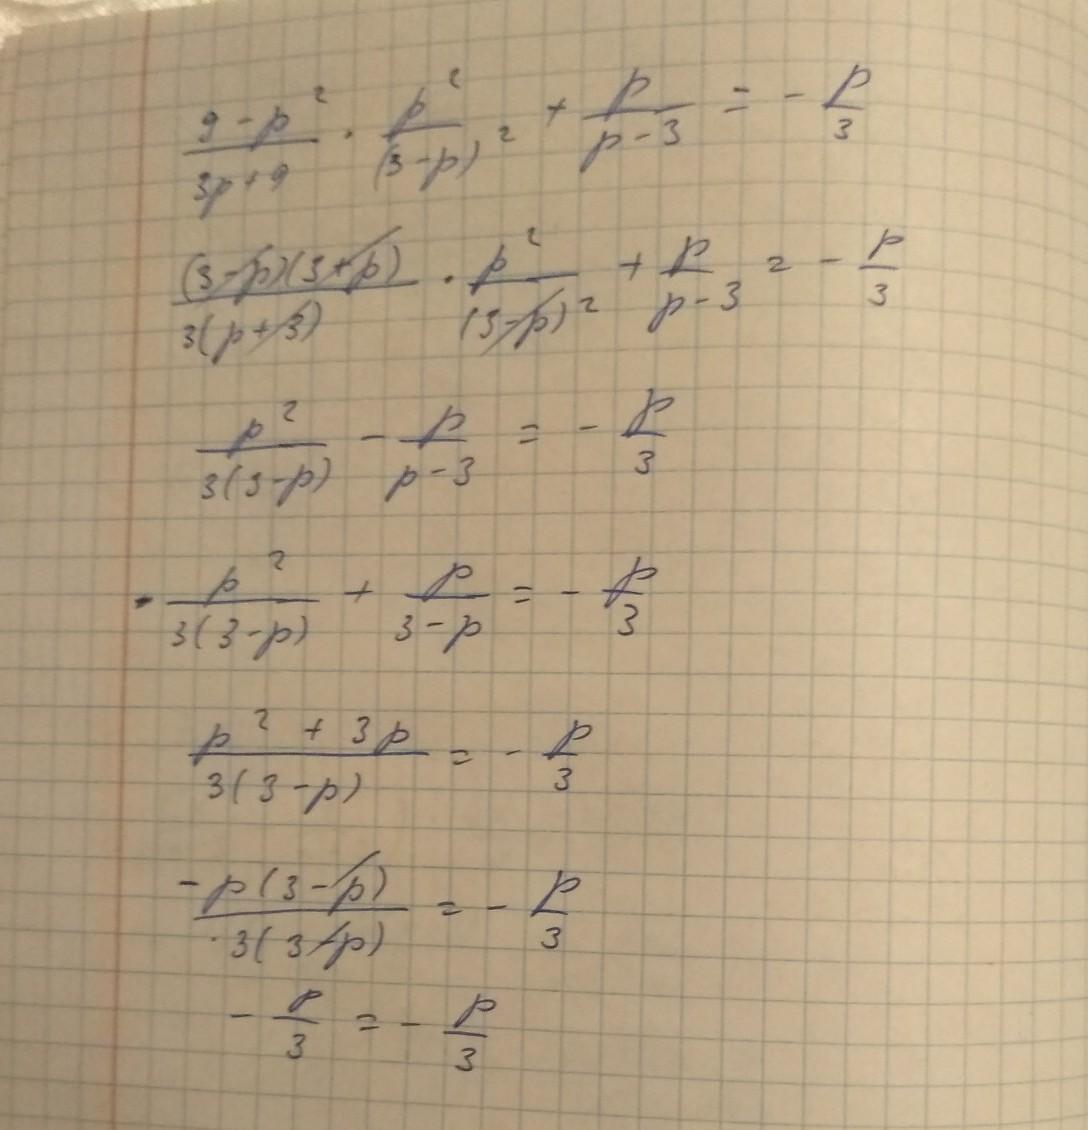 (9 - p²)/(3p + 9) · p²/(3 - p)² + p/(p - 3) = - p/3
((3 - p)(3 + p))/(3(p + 3)) · p²/(3 - p)² + p/(p - 3) = - p/3
p²/(3(3 - p)) - p/(p - 3) = - p/3
- p²/(3(3 - p)) + p/(3 - p) = - p/3
(p² + 3p)/(3(3 - p)) = - p/3
(-p(3 - p))/(3(3 - p)) = - p/3
- p/3 = - p/3